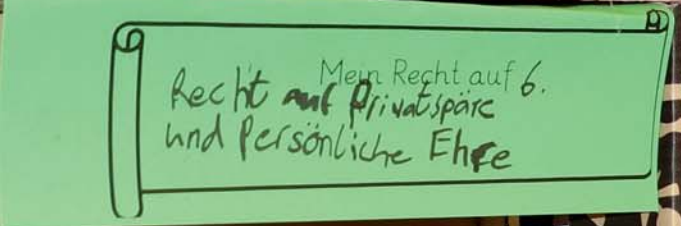 Mein Recht auf 6.
Recht auf Privatspäre
und Persönliche Ehre